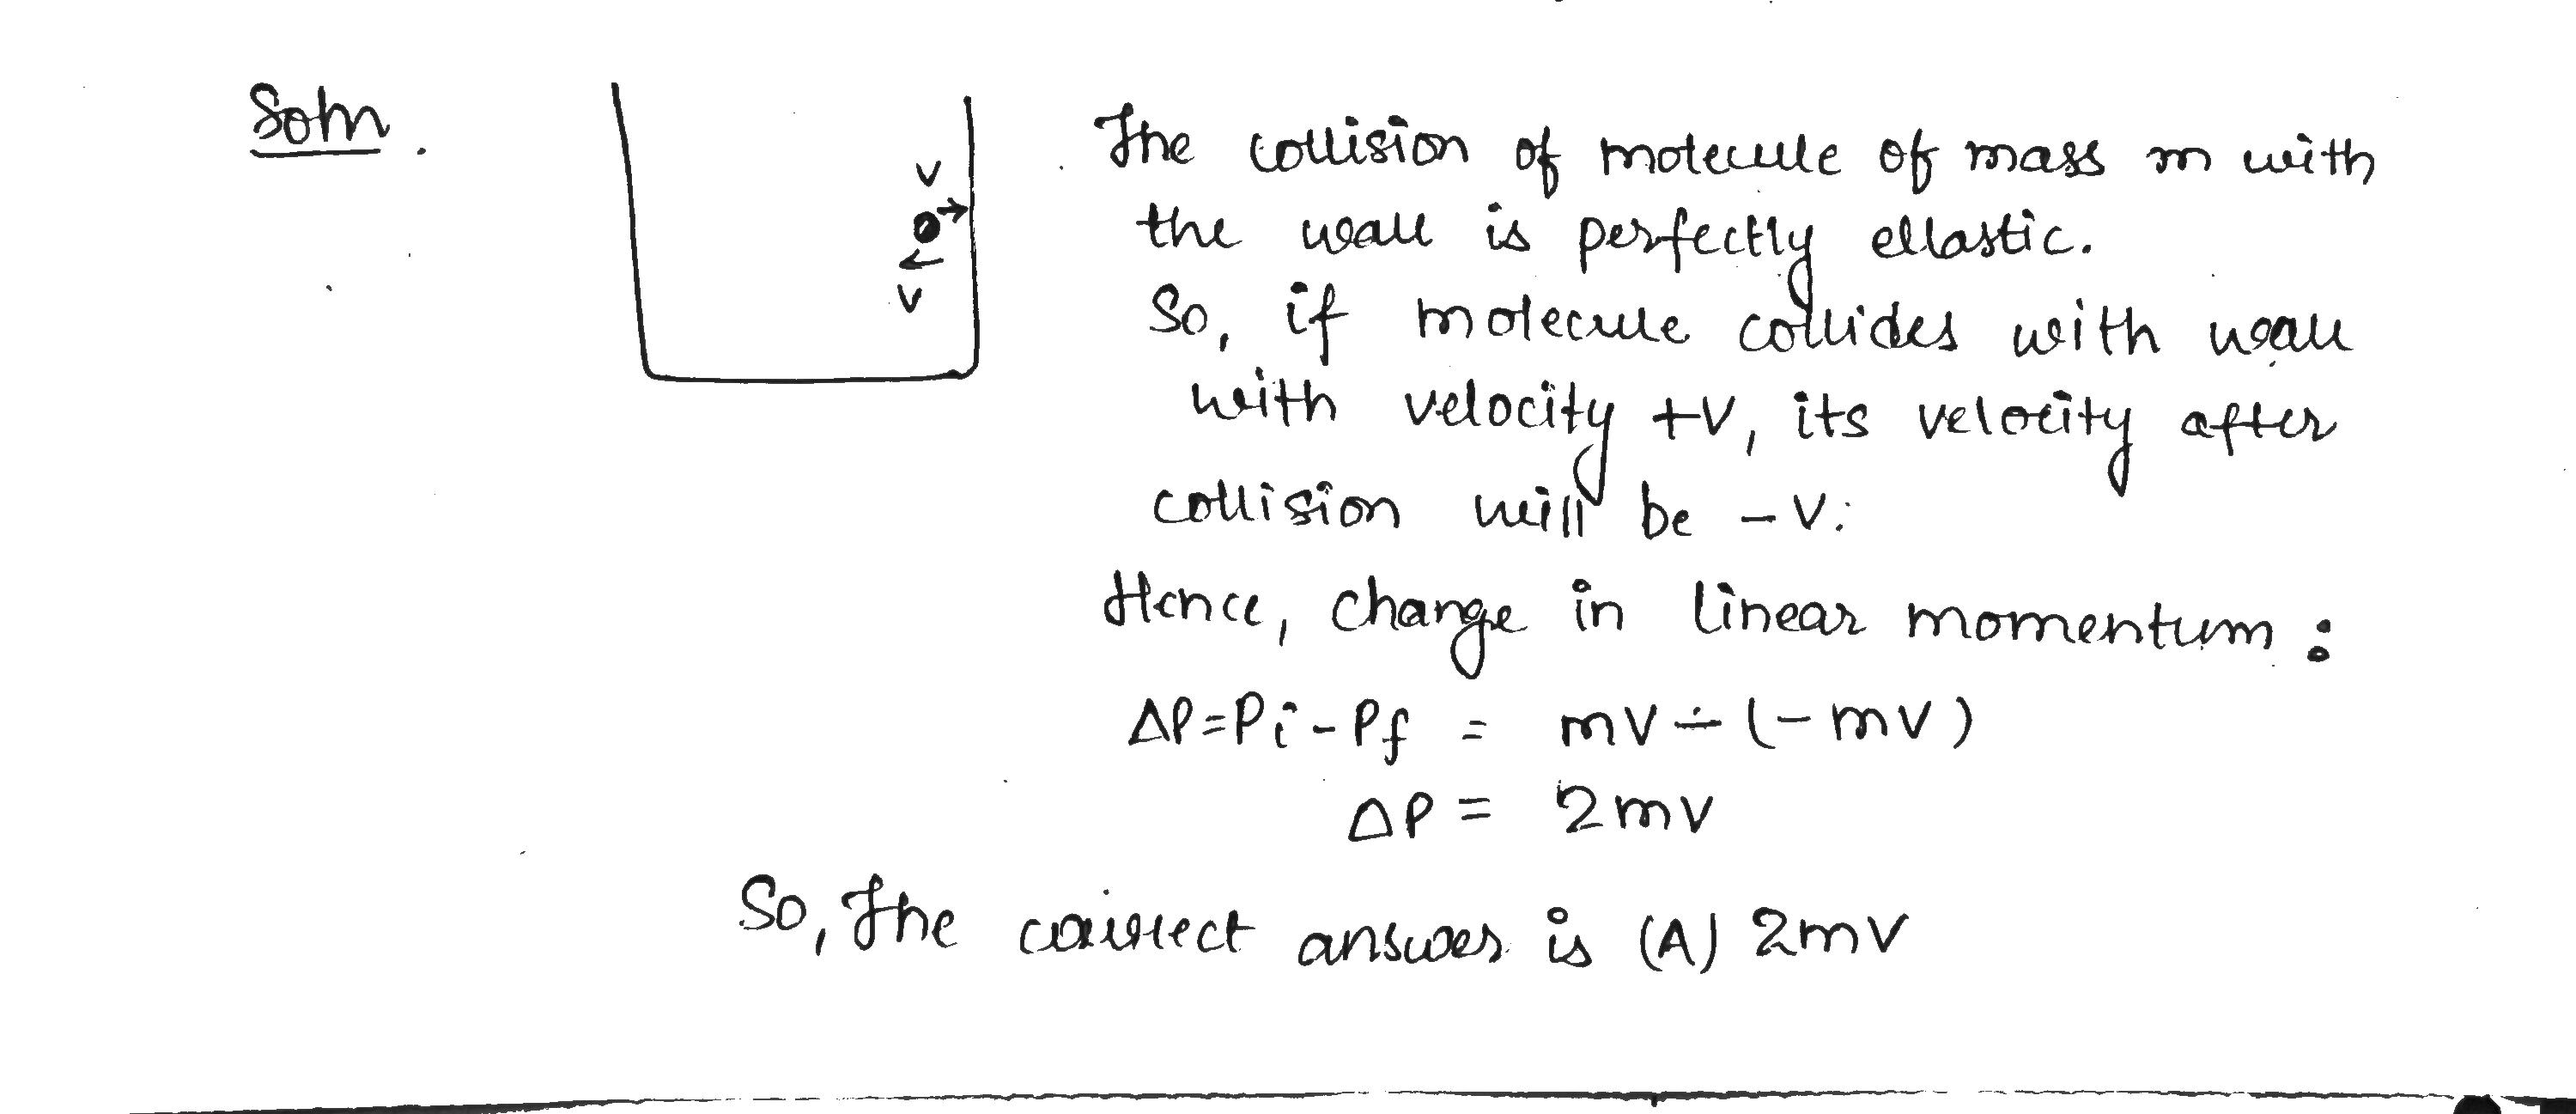 Soln.
V
V
The collision of molecule of mass m with
the wall is perfectly ellastic.
So, if molecule collides with wall
with velocity +V, its velocity after
collision will be -V.
Hence, change in linear momentum :
ΔP=Pi-Pf = mV-(-mV)
ΔP = 2mV
So, The correct answer is (A) 2mV